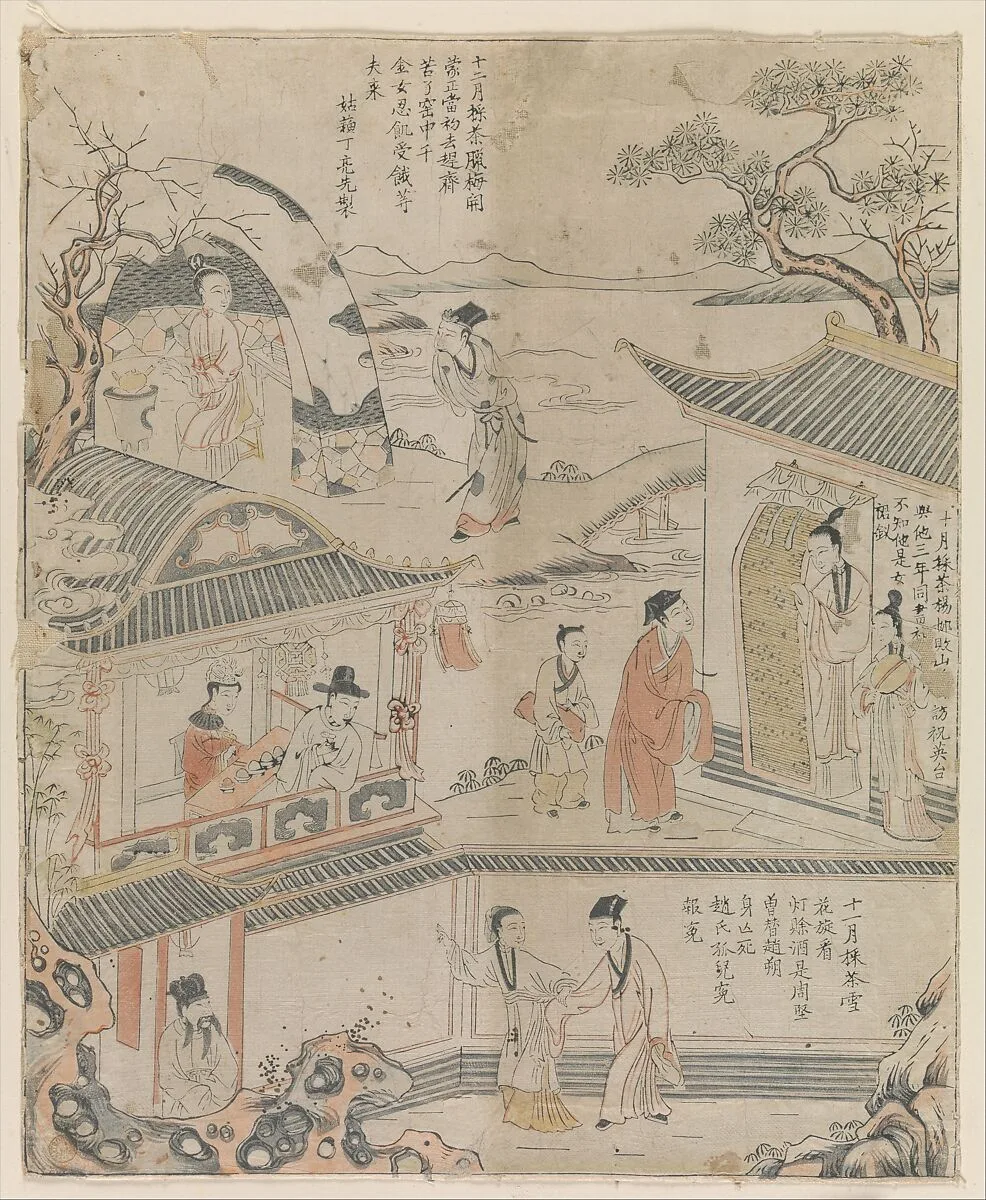 十二月採茶臘梅開
蒙正當初去趕齋
苦了窑中千
金女忍飢受餓等
夫来
姑蘓丁亮先製
十月採茶
山
訪祝英台
與他三年同書
不知他是女
裙釵
十一月採茶雪
花旋看
灯賒酒是周堅
曽替趙朔
身亾死
趙氏孤兒寃
報寃